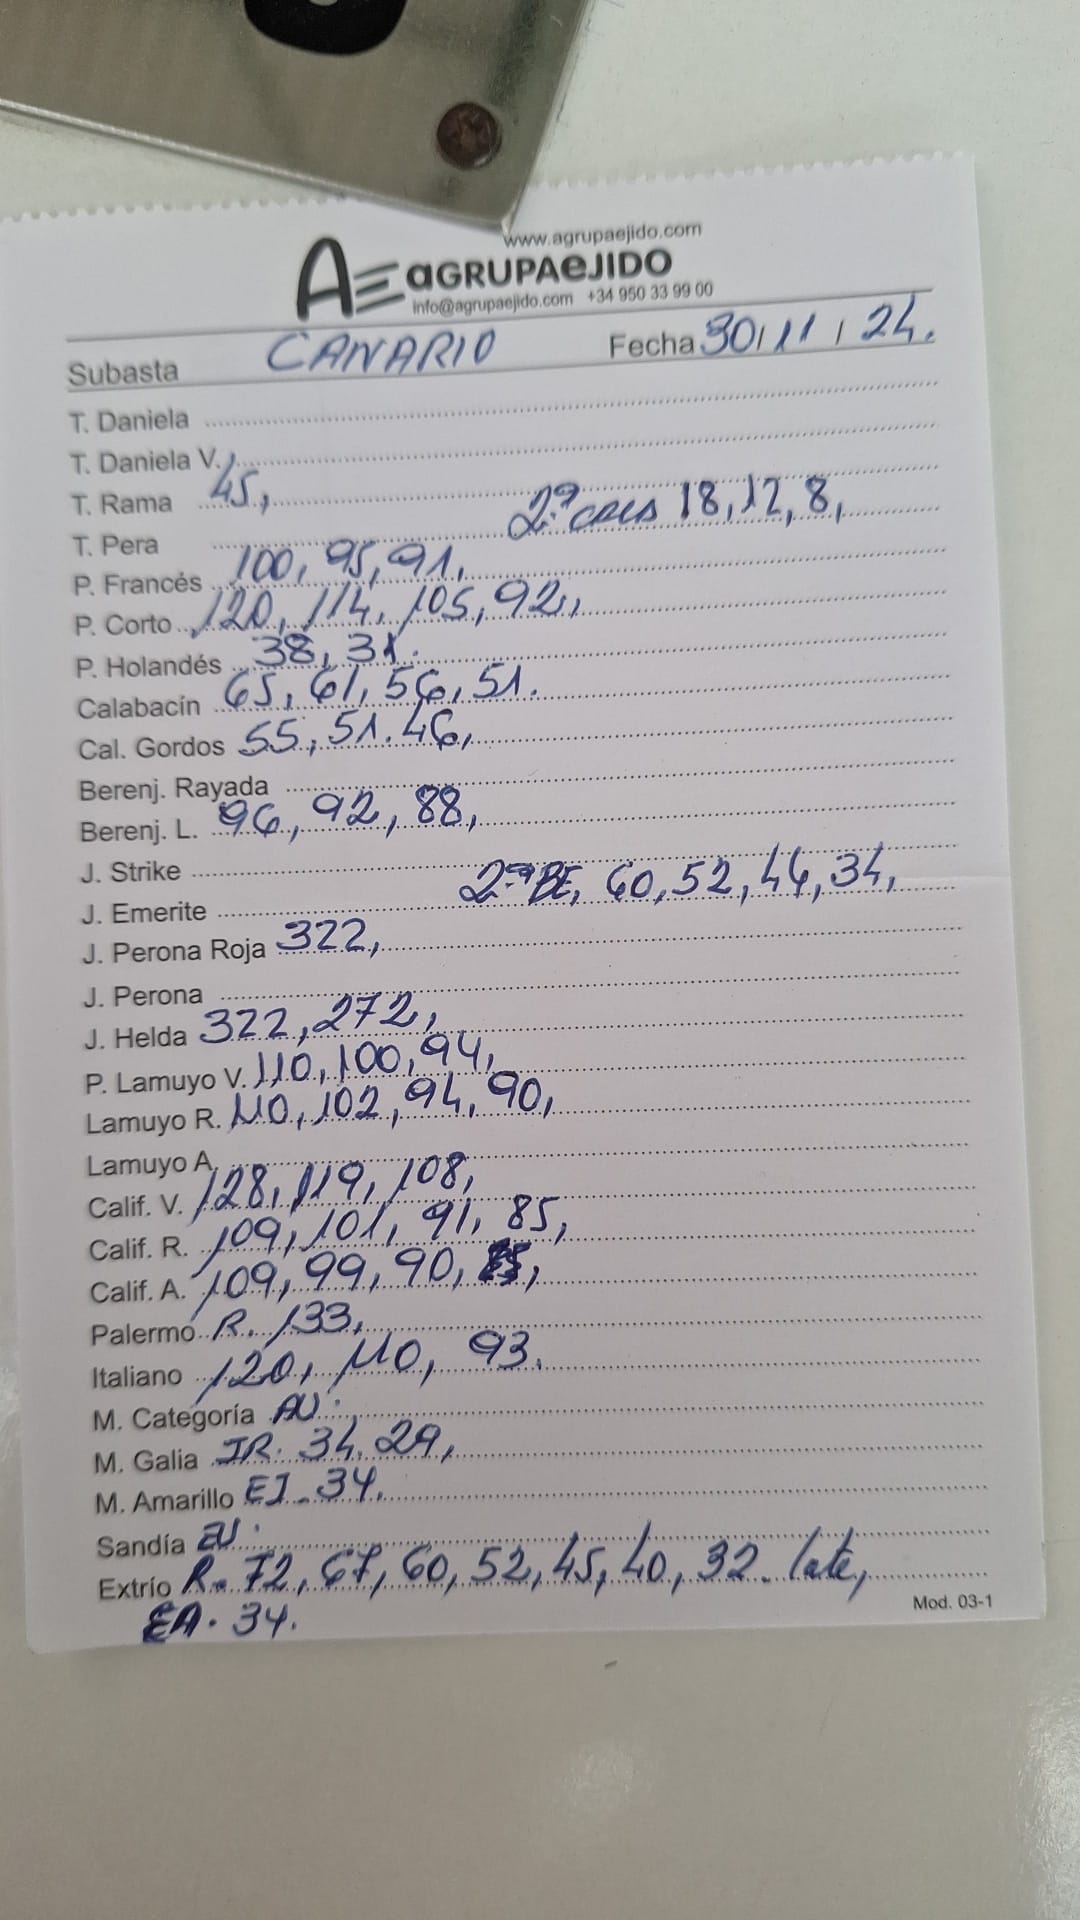 www.agrupaejido.com
AE aGRUPAeJIDO
info@agrupaejido.com +34 950 33 99 00
Subasta CANARIO Fecha 30/11/24.
T. Daniela
T. Daniela V.
T. Rama 45,
T. Pera 2ª CALA 18, 12, 8,
P. Francés 100, 95, 91,
P. Corto 120, 114, 105, 92,
P. Holandés 38, 31.
Calabacín 65, 61, 56, 51.
Cal. Gordos 55, 51. 46,
Berenj. Rayada
Berenj. L. 96, 92, 88,
J. Strike
J. Emerite 2ª BE, 60, 52, 44, 34,
J. Perona Roja 322,
J. Perona
J. Helda 322, 272,
P. Lamuyo V. 110, 100, 94,
Lamuyo R. 110, 102, 94, 90,
Lamuyo A.
Calif. V. 128, 119, 108,
Calif. R. 109, 101, 91, 85,
Calif. A. 109, 99, 90,
Palermo R. 133,
Italiano 120, 110, 93.
M. Categoría AU.
M. Galia IR. 34, 29,
M. Amarillo EJ. 34.
Sandía EU.
Extrío R. 72, 67, 60, 52, 45, 40, 32. late,
EA. 34.
Mod. 03-1